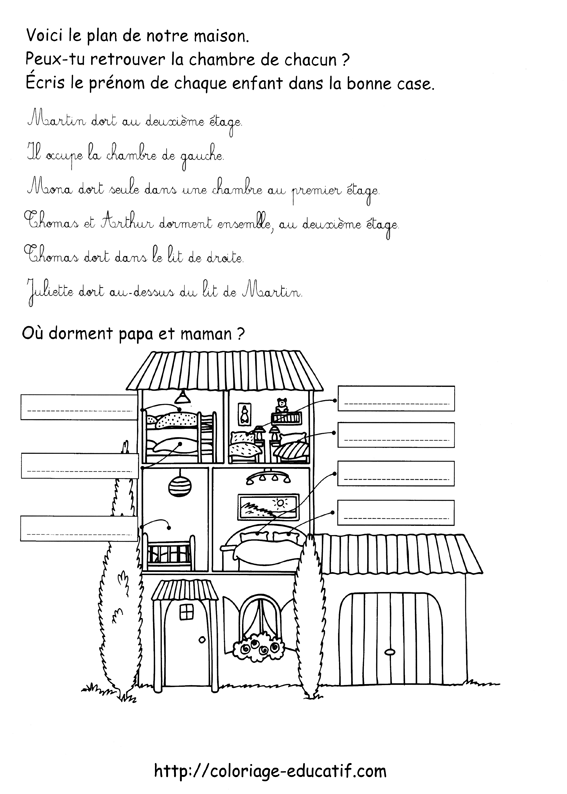 Voici le plan de notre maison.
Peux-tu retrouver la chambre de chacun ?
Écris le prénom de chaque enfant dans la bonne case.
Martin dort au deuxième étage.
Il occupe la chambre de gauche.
Mona dort seule dans une chambre au premier étage.
Thomas et Arthur dorment ensemble, au deuxième étage.
Thomas dort dans le lit de droite.
Juliette dort au-dessus du lit de Martin.
Où dorment papa et maman ?
http://coloriage-educatif.com